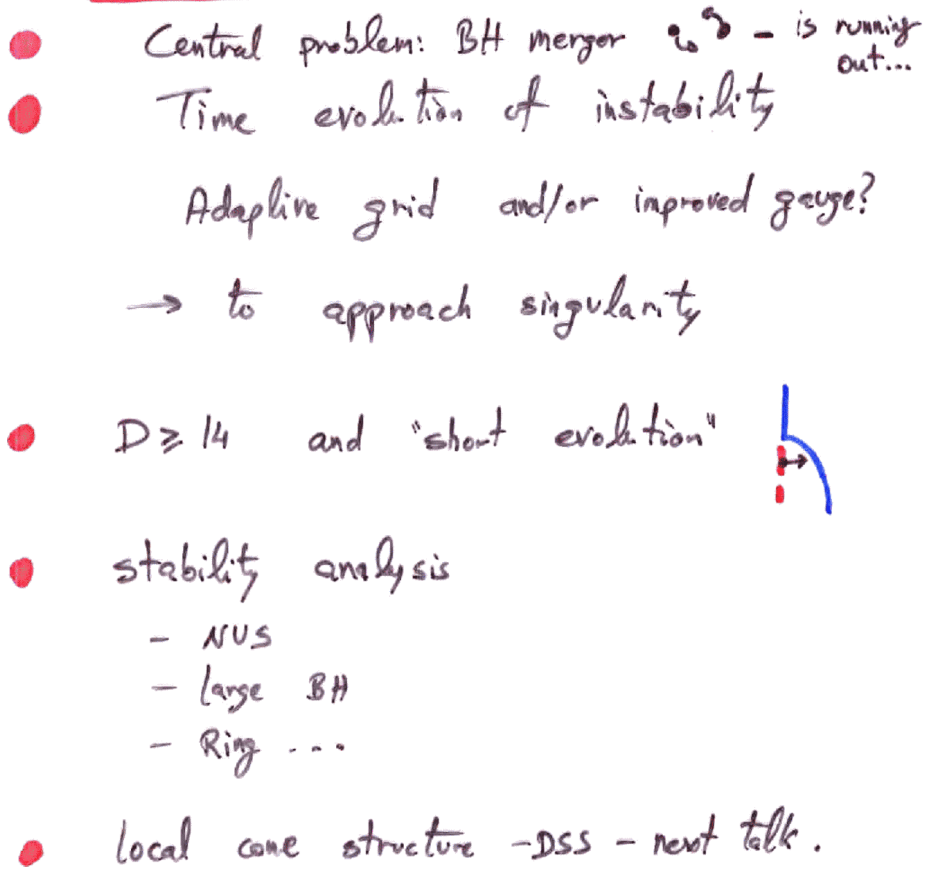 Central problem: BH merger - is running out...
Time evolution of instability
Adaptive grid and/or improved gauge?
→ to approach singularity
D ≥ 14 and "short evolution"
stability analysis
- NUS
- large BH
- Ring ...
local cone structure - DSS - next talk.